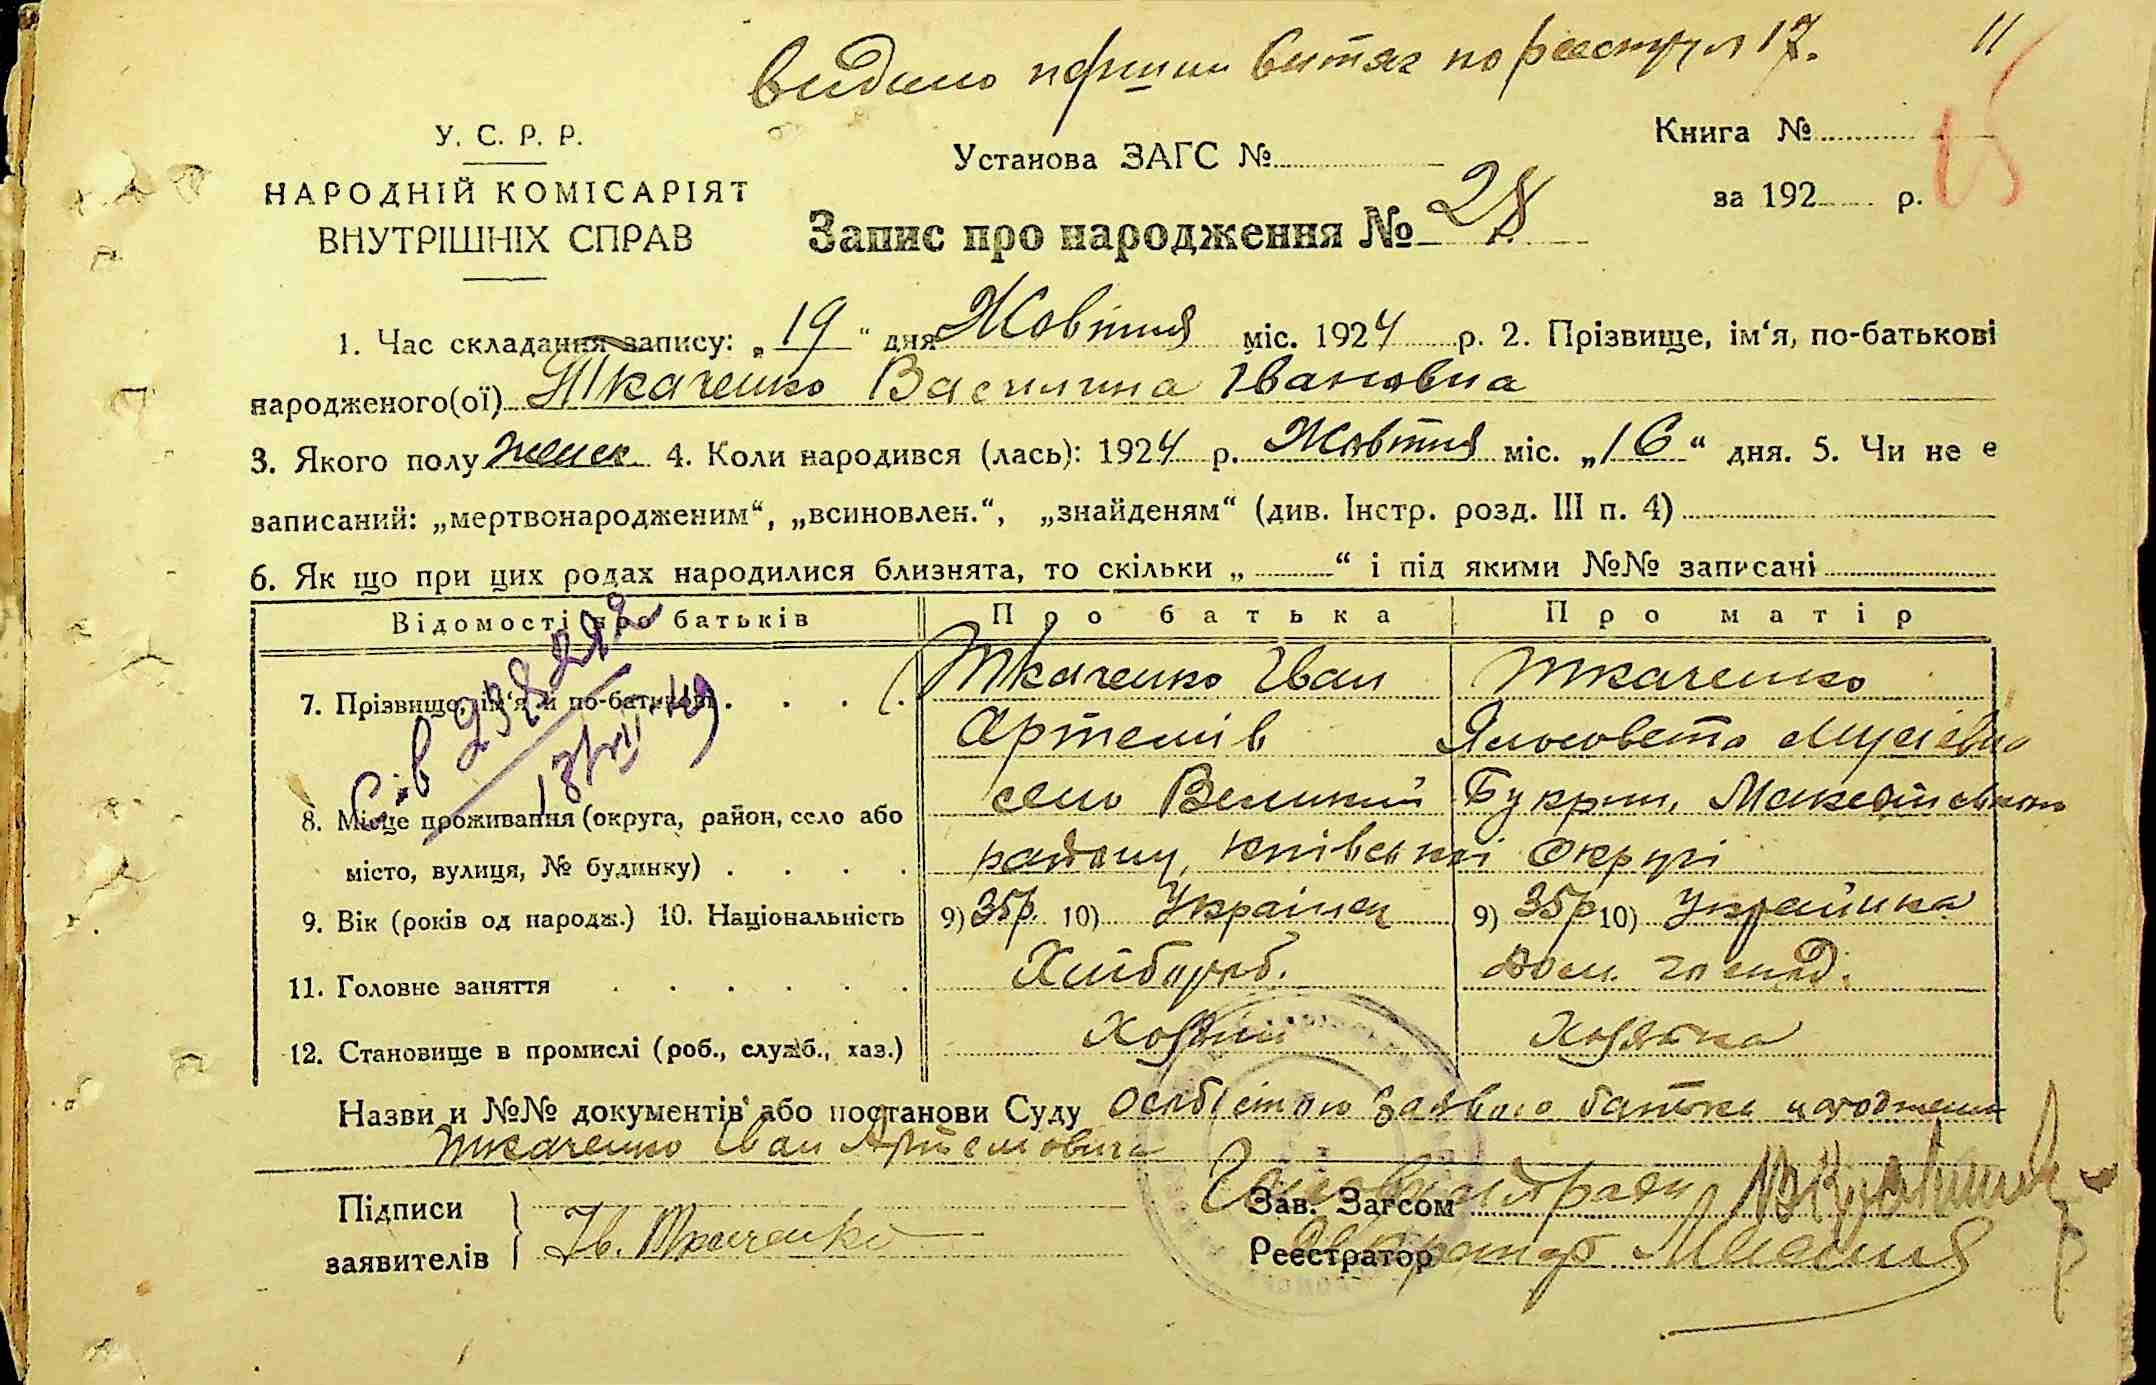 видано перший витяг по реестру № 17. 11
У. С. Р. Р.
НАРОДНІЙ КОМІСАРІЯТ
ВНУТРІШНІХ СПРАВ
Установа ЗАГС №
Книга №
за 192 р.
Запис про народження № 28
1. Час складання запису: „19“ дня Жовтня міс. 1924 р. 2. Прізвище, ім‘я, по-батькові
народженого(ої) Ткаченко Василина Івановна
3. Якого полу женск 4. Коли народився (лась): 1924 р. Жовтня міс. „16“ дня. 5. Чи не є
записаний: „мертвонародженим“, „всиновлен.“, „знайденям“ (див. Інстр. розд. III п. 4)
6. Як що при цих родах народилися близнята, то скільки „ “ і під якими №№ записані
Відомості про батьків Про батька Про матір
7. Прізвище, ім‘я й по-батькові Ткаченко Іван Ткаченко
Артемів Мусіевна
8. Місце проживання (округа, район, село або село Великий Букрин, Македонського
місто, вулиця, № будинку) району, Київської Округи
9. Вік (років од народж.) 10. Національність 9) 35р. 10) Українец 9) 35р 10) Українка
11. Головне заняття Хлібороб. Дом. господ.
12. Становище в промислі (роб., служб., хаз.) Хозяїн Хозяйка
Назви и №№ документів або постанови Суду Особистою заявою батька народженої
Ткаченко Іван Артемовича
Підписи
заявителів Ів. Ткаченко
Зав. Загсом
Реєстратор